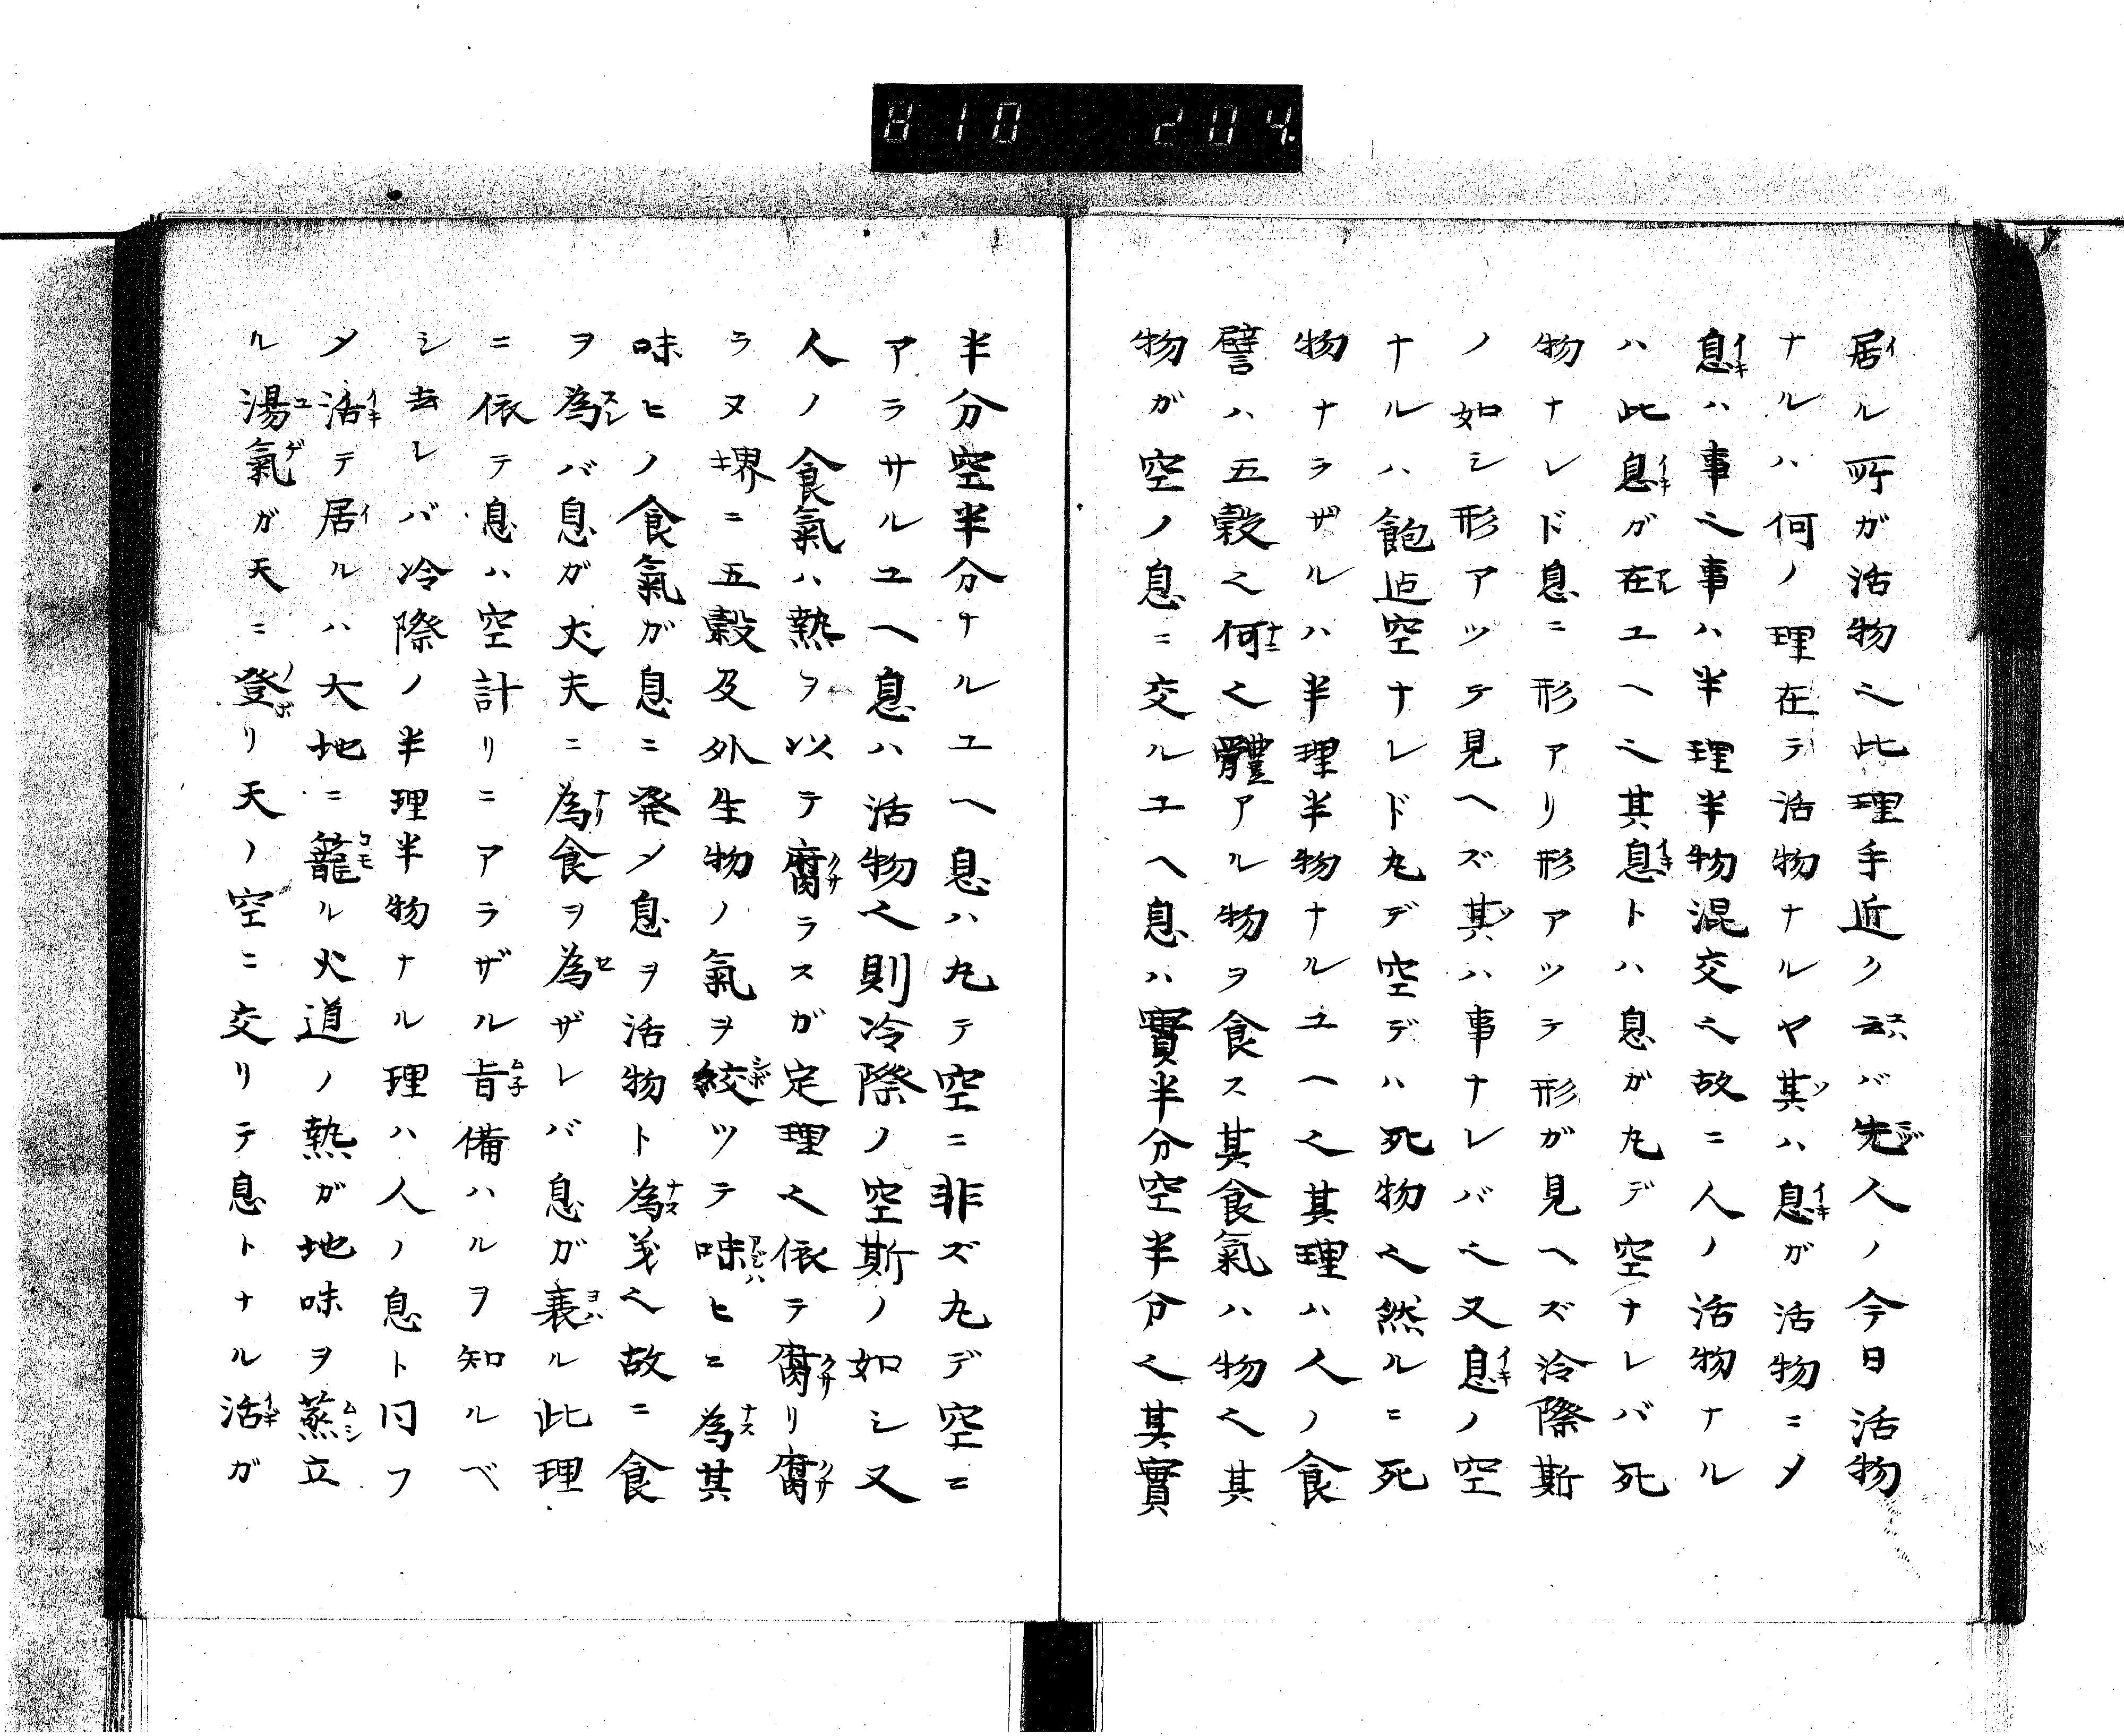 810 204.
居ル所ガ活物也此理手近ク云バ先人ノ今日活物
ナルハ何ノ理在テ活物ナルヤ其ハ息ガ活物ニ〆
息ハ事也事ハ半理半物混交也故ニ人ノ活物ナル
ハ此息ガ在ユヘ也其息トハ息ガ丸デ空ナレバ死
物ナレド息ニ形アリ形アツテ形ガ見ヘズ冷際斯
ノ如シ形アツテ見ヘズ其ハ事ナレバ也又息ノ空
ナルハ飽迠空ナレド丸デ空デハ死物也然ルニ死
物ナラザルハ半理半物ナルユヘ也其理ハ人ノ食
譬ハ五穀也何也體アル物ヲ食ス其食氣ハ物也其
物ガ空ノ息ニ交ルユヘ息ハ實半分空半分也其實
半分空半分ナルユヘ息ハ丸テ空ニ非ズ丸デ空ニ
アラサルユヘ息ハ活物也則冷際ノ空斯ノ如シ又
人ノ食氣ハ熱ヲ以テ腐ラスガ定理也依テ腐リ腐
ラヌ堺ニ五穀及外生物ノ氣ヲ絞ツテ味ヒニ為其
味ヒノ食氣ガ息ニ発〆息ヲ活物ト為羙也故ニ食
ヲ為バ息ガ丈夫ニ為食ヲ為ザレバ息ガ衰ル此理
ニ依テ息ハ空計リニアラザル旨備ハルヲ知ルベ
シ去レバ冷際ノ半理半物ナル理ハ人ノ息ト同フ
〆活テ居ルハ大地ニ籠ル火道ノ熱ガ地味ヲ蒸立
ル湯氣ガ天ニ登リ天ノ空ニ交リテ息トナル活ガ